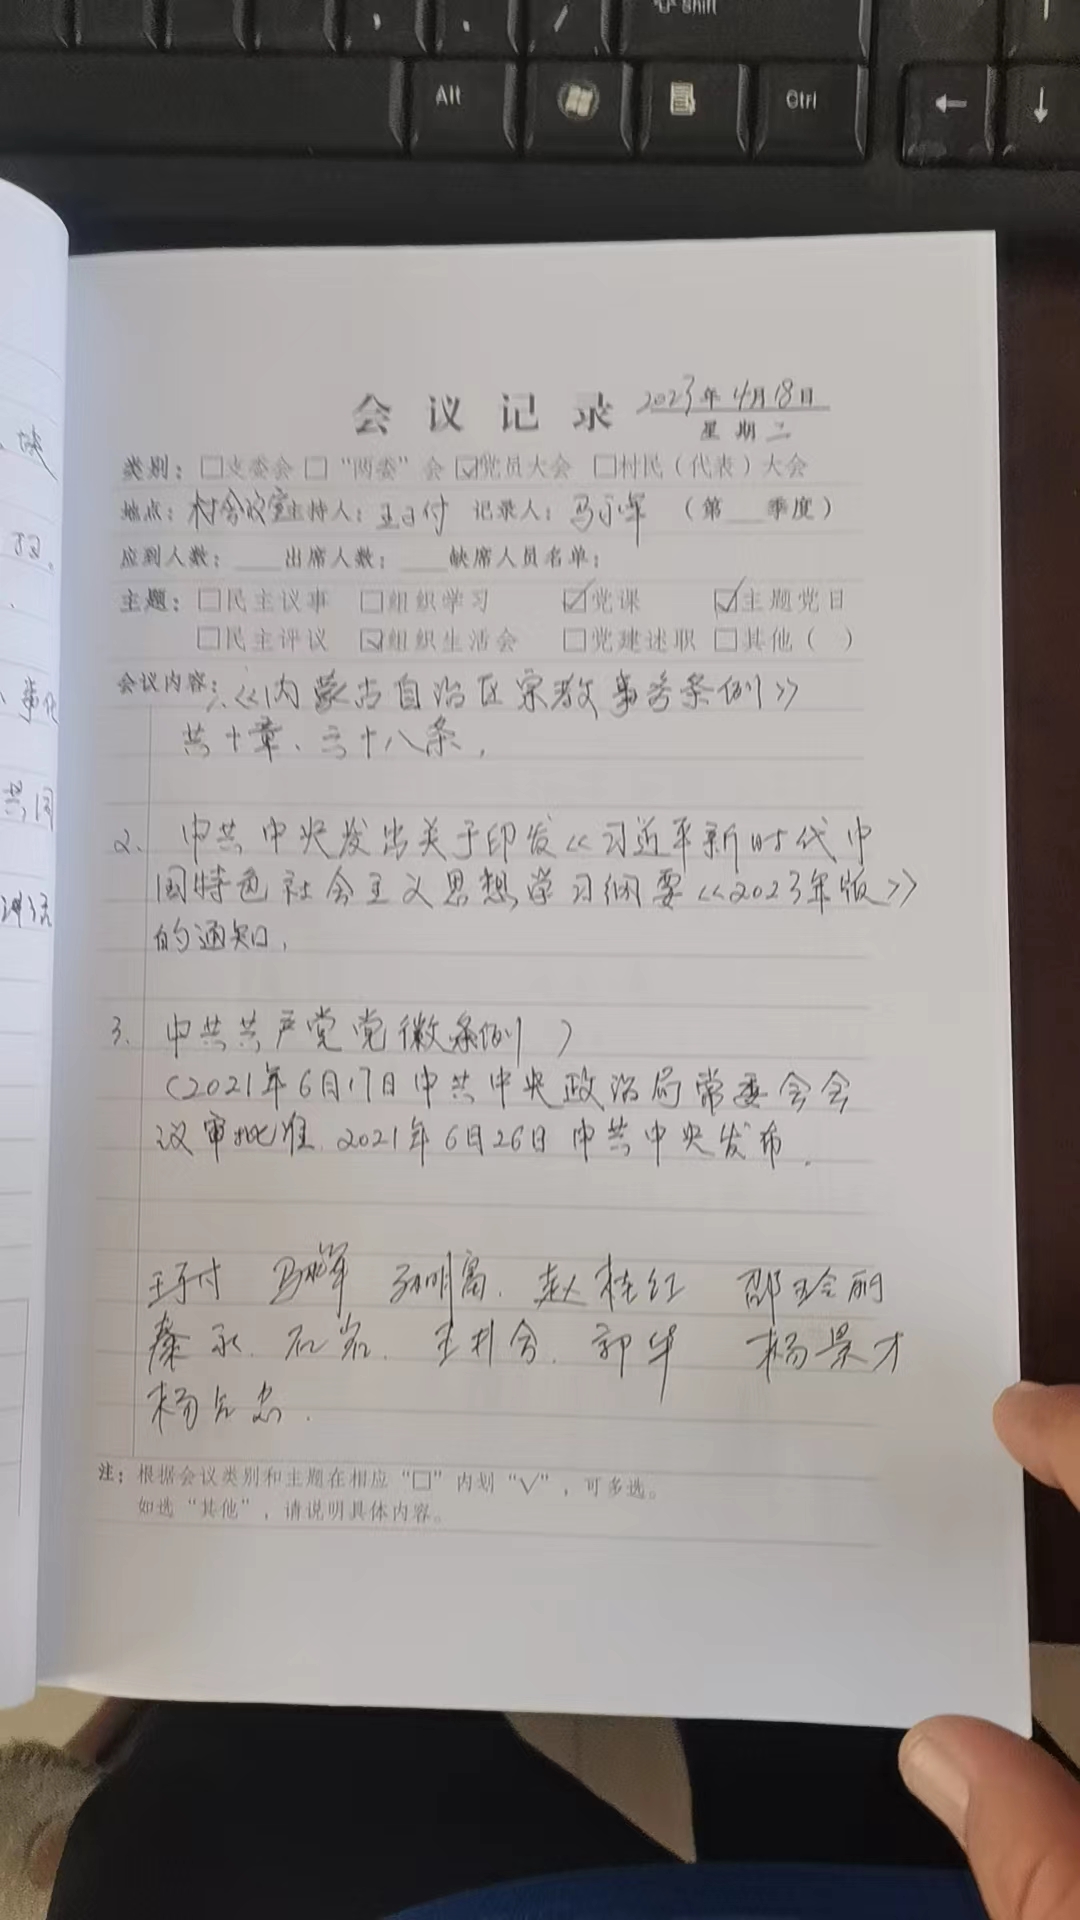 shift
Alt
Ctrl
会议记录 2023年4月18日
星期二
类别：□支委会 □“两委”会 ☑党员大会 □村民（代表）大会
地点：村会议室 主持人： 记录人： （第 季度）
应到人数： 出席人数： 缺席人员名单：
主题：□民主议事 □组织学习 ☑党课 ☑主题党日
□民主评议 ☑组织生活会 □党建述职 □其他（ ）
会议内容：1.《内蒙古自治区宗教事务条例》
共十章、六十八条.
2. 中共中央发出关于印发《习近平新时代中
国特色社会主义思想学习纲要《2023年版》
的通知.
3. 中共共产党党徽条例）
（2021年6月17日中共中央政治局常委会会
议审批准.2021年6月26日中共中央发布.
赵桂红 邵玲丽
秦永. 石岩. 郭华 杨景才
注：根据会议类别和主题在相应“□”内划“√”，可多选。
如选“其他”，请说明具体内容。